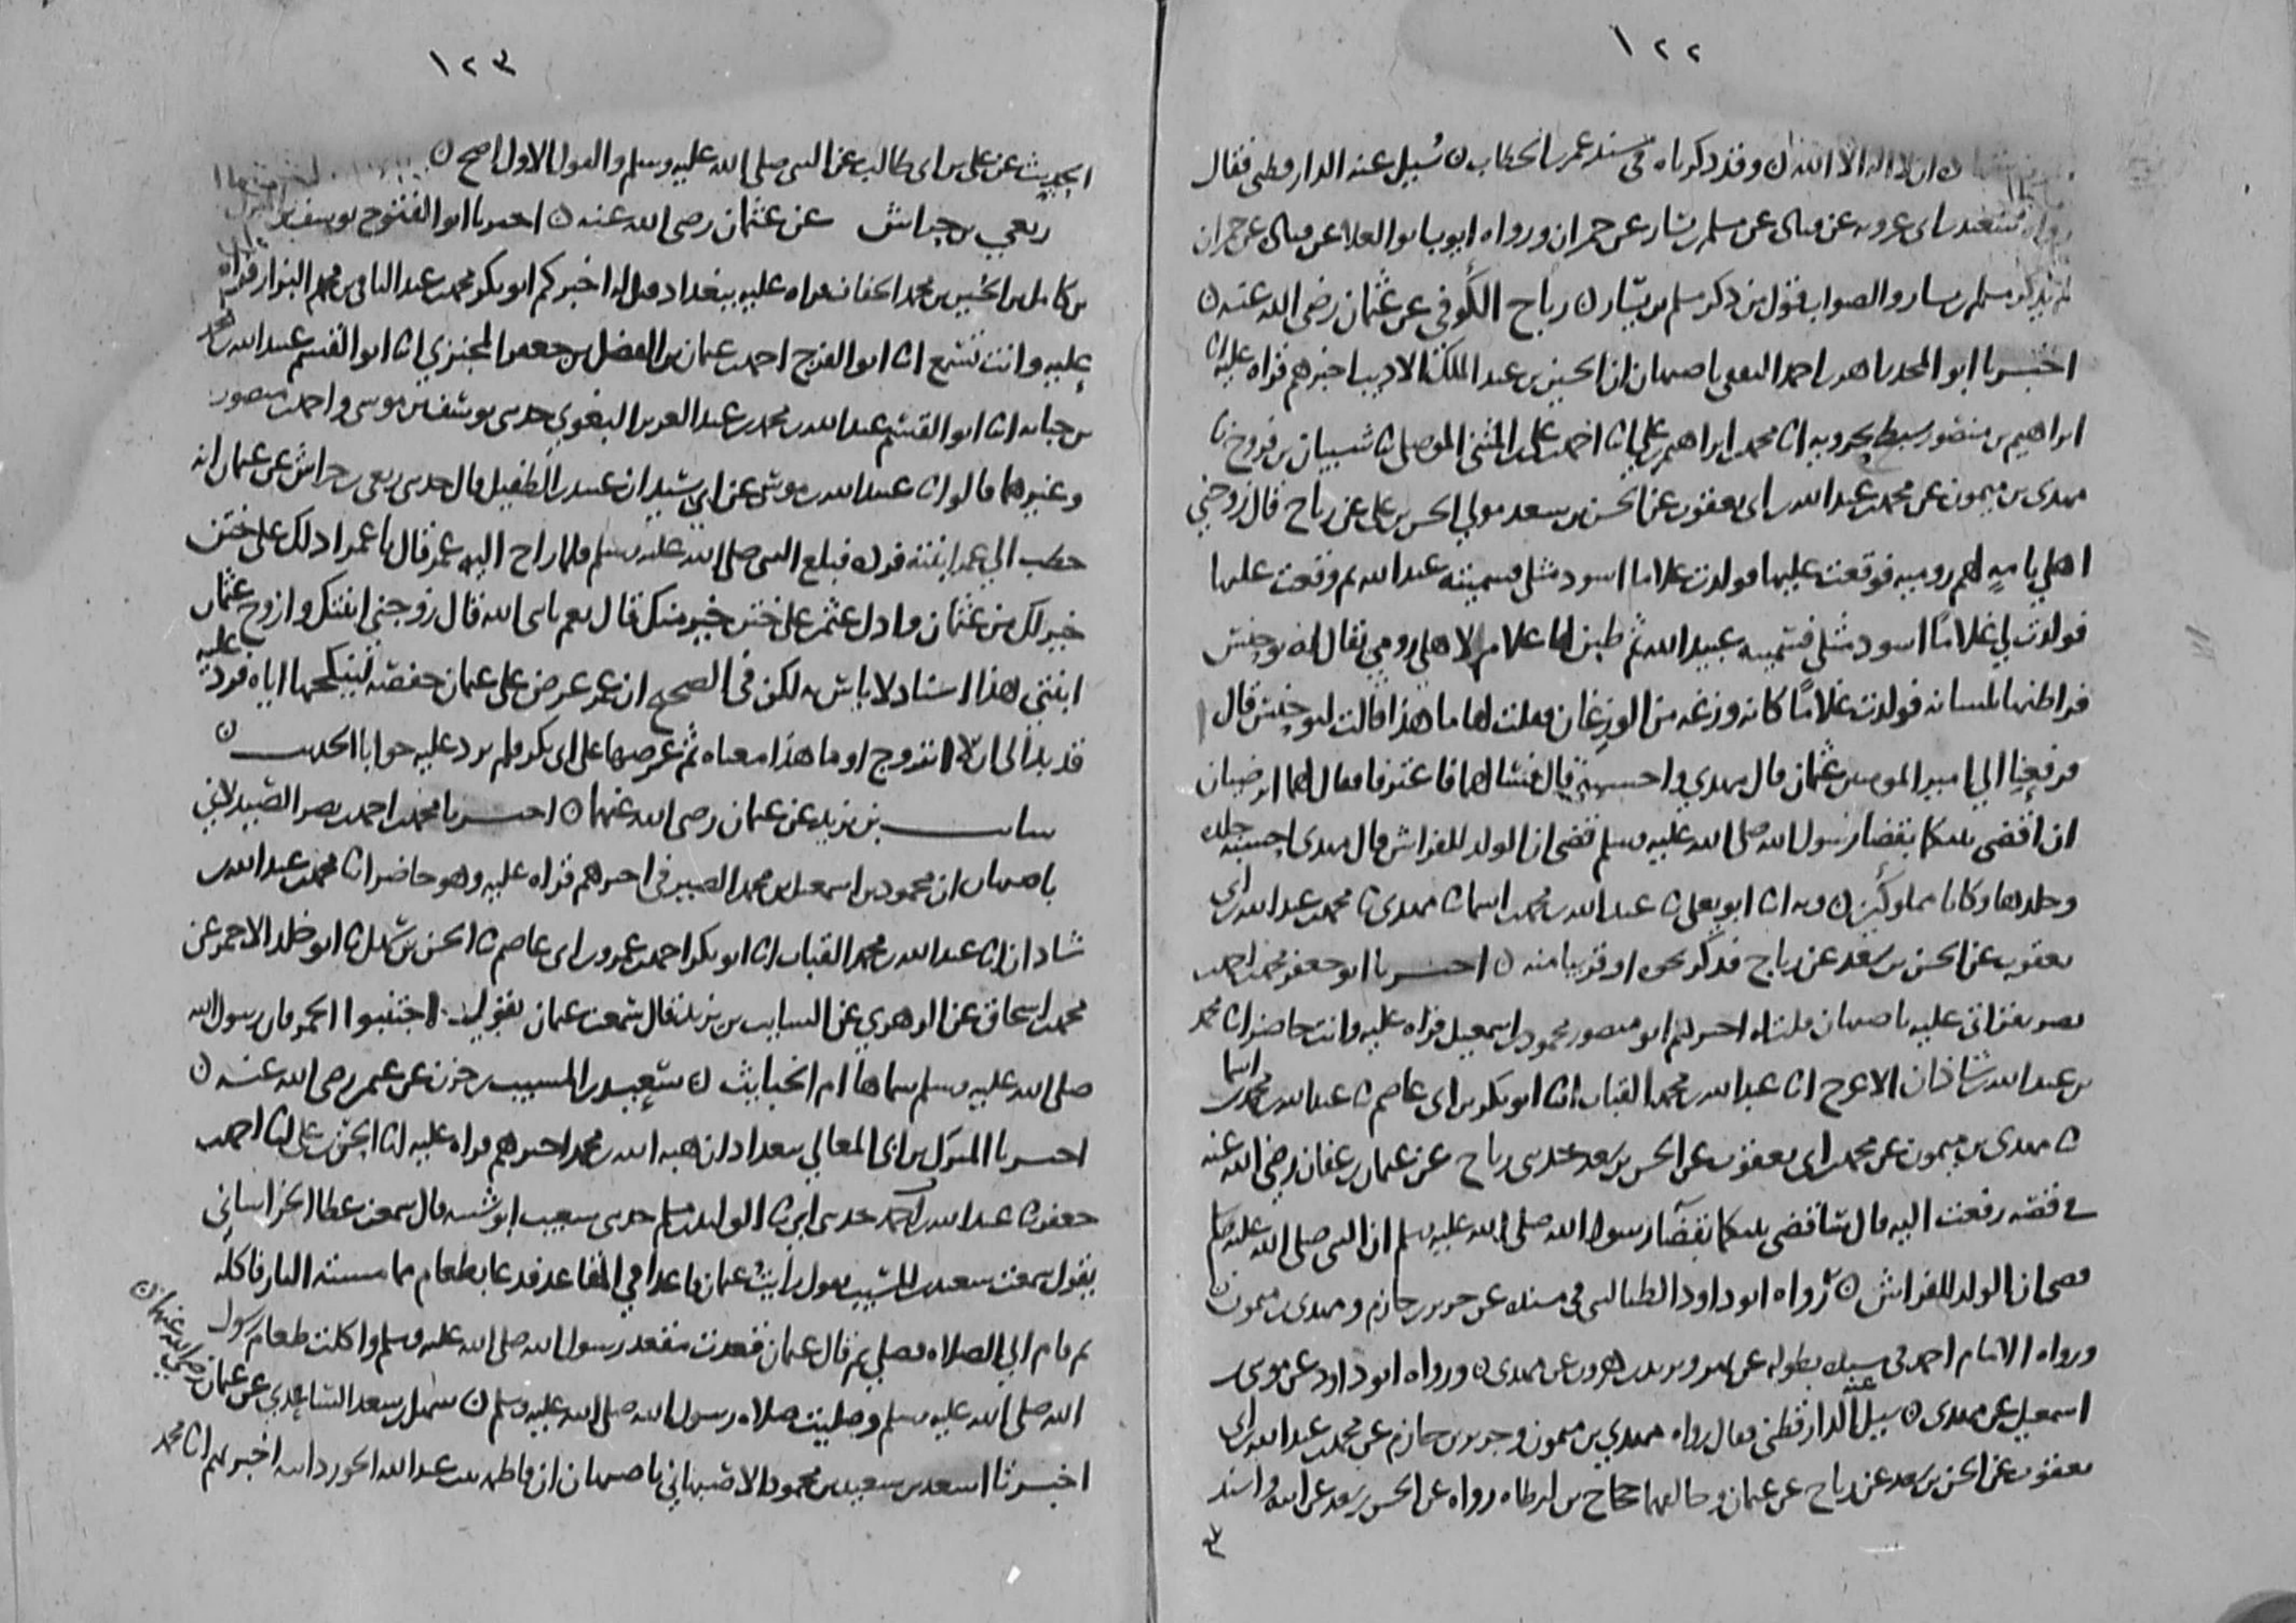 ١٢٢
ان لا اله الا الله ن وقد ذكرناه في مسند عمر بن الخطاب ن سُيل عنه الدارقطني فقال
سعيد بن ابي عروبه عن قتاده عن مسلم بن يسار عن حمران ورواه ايوب ابو العلا عن قتاده عن حمران
لم يذكر مسلم بن يسار والصواب قول من ذكر مسلم بن يسار ن رباح الكوفي عن عثمان رضي الله عنه ن
اخبرنا ابو المجد زاهر بن احمد الثقفي باصبهان ان الحسين بن عبد الملك الاديب اخبرهم قراه عليه انا
ابراهيم بن منصور سبط بحرويه انا محمد بن ابراهيم بن علي انا احمد بن علي بن المثنى الموصلي نا شيبان بن فروخ نا
مهدي بن ميمون عن محمد بن عبد الله بن ابي يعقوب عن الحسن بن سعد مولى الحسن بن علي عن رباح قال زوجني
اهلي يامه لهم روميه فوقعت عليها فولدت غلاما اسود مثلي فسميته عبد الله ثم وقعت عليها
فولدت لي غلامًا اسود مثلي فسميته عبيد الله ثم طبن لها غلام لاهلي رومي يقال له يوحنس
فراطنها بلسانه فولدت غلامًا كانه وزغه من الوزغان فقلت لها ما هذا قالت ليوحنس قال
فرفعنا الي امير المومنين عثمان قال مهدي واحسبه قال فسالهما فاعترفا فقال لهما اترضيان
ان اقضي بينكما بقضا رسول الله صلى الله عليه وسلم قضى ان الولد للفراش قال مهدي احسبه جلده
وجلدها وكانا مملوكين ن وبه انا ابو يعلى نا عبد الله بن محمد بن اسما نا مهدي نا محمد بن عبد الله بن ابي
يعقوب عن الحسن بن سعد عن رباح فذكر نحوه او قريبا منه ن اخبرنا ابو جعفر محمد بن احمد
بن نصر بقراتي عليه باصبهان قلت له اخبركم ابو منصور محمود بن اسمعيل قراه عليه وانت حاضر انا محمد
بن عبد الله بن شاذان الاعرج انا عبد الله بن محمد القباب انا ابو بكر بن ابي عاصم نا عبد الله بن محمد بن اسما
نا مهدي بن ميمون عن محمد بن ابي يعقوب عن الحسن بن سعد حدثني رباح عن عثمان بن عفان رضي الله عنه
في قصه رفعت اليه قال ساقضي بينكما بقضا رسول الله صلى الله عليه وسلم ان النبي صلى الله عليه وسلم
قضى ان الولد للفراش ن رواه ابو داود الطيالسي في مسنده عن جرير بن حازم ومهدي بن ميمون
ورواه الامام احمد في مسنده بطوله عن بهز ويزيد بن هرون عن مهدي ن ورواه ابو داود عن موسى بن
اسمعيل عن مهدي ن سيل عنه الدارقطني فقال رواه مهدي بن ميمون وجرير بن حازم عن محمد بن عبد الله بن ابي
يعقوب عن الحسن بن سعد عن رباح عن عثمان وخالفهما حجاج بن ارطاه رواه عن الحسن بن سعد عن ابيه واسند
١٢٣
الحديث عن علي بن ابي طالب عن النبي صلى الله عليه وسلم والقول الاول اصح ن
ربعي بن حراش عن عثمان رضي الله عنه ن اخبرنا ابو الفتوح يوسف بن
بن كامل بن الحسين بن محمد الخفاف قراه عليه ببغداد قيل له اخبركم ابو بكر محمد بن عبد الباقي بن محمد البزار قراه
عليه وانت تسمع انا ابو الفرج احمد بن عثمان بن الفضل بن جعفر المخبزي انا ابو القسم عبيد الله بن محمد
بن حبابه انا ابو القسم عبد الله بن محمد بن عبد العزيز البغوي حدثني يوسف بن موسى واحمد بن منصور
وغيرهما قالوا نا عبيد الله بن موسى عن ابي سيدان عبيد بن الطفيل قال حدثني ربعي بن حراش عن عثمان انه
خطب الي عمر ابنته فرده فبلغ النبي صلى الله عليه وسلم فلما راح اليه عمر قال يا عمر ادلك على ختن
خير لك من عثمان وادل عثمن على ختن خير منك قال نعم يا نبي الله قال زوجني ابنتك وازوج عثمان
ابنتي هذا اسناد لا باس به لكن في الصحيح ان عمر عرض على عثمان حفصه لينكحها اياه فرد عليه
قد بدا لي ان لا اتزوج او ما هذا معناه ثم عرضها على ابي بكر فلم يرد عليه جوابا الحديث ن
سايب بن يزيد عن عثمان رضي الله عنهما ن اخبرنا محمد بن احمد بن نصر الصيدلاني
باصبهان ان محمود بن اسمعيل بن محمد الصيرفي اخبرهم قراه عليه وهو حاضر انا محمد بن عبد الله بن
شاذان انا عبد الله بن محمد القباب انا ابو بكر احمد بن عمرو بن ابي عاصم نا الحسن بن سهل نا ابو خلد الاحمر عن
محمد بن اسحاق عن الزهري عن السايب بن يزيد قال سمعت عثمان يقول اجتنبوا الخمر فان رسول الله
صلى الله عليه وسلم سماها ام الخبايث ن سعيد بن المسيب بن حزن عن عثمن رضي الله عنه ن
اخبرنا المبارك بن ابي المعالي ببغداد ان هبه الله بن محمد اخبرهم قراه عليه انا الحسن بن علي انا احمد بن
جعفر نا عبد الله بن احمد حدثني ابي نا الوليد بن مسلم حدثني شعيب ابو شيبه قال سمعت عطا الخراساني
يقول سمعت سعيد بن المسيب يقول رايت عثمان قاعدا في المقاعد فدعا بطعام مما مسته النار فاكله
ثم قام الي الصلاه فصلى ثم قال عثمان قعدت مقعد رسول الله صلى الله عليه وسلم واكلت طعام رسول
الله صلى الله عليه وسلم وصليت صلاه رسول الله صلى الله عليه وسلم ن سهل بن سعد الساعدي عن عثمان رضي الله عنهما ن
اخبرنا اسعد بن سعيد بن محمود الاصبهاني باصبهان ان فاطمه بنت عبد الله الجوزدانيه اخبرتهم انا محمد